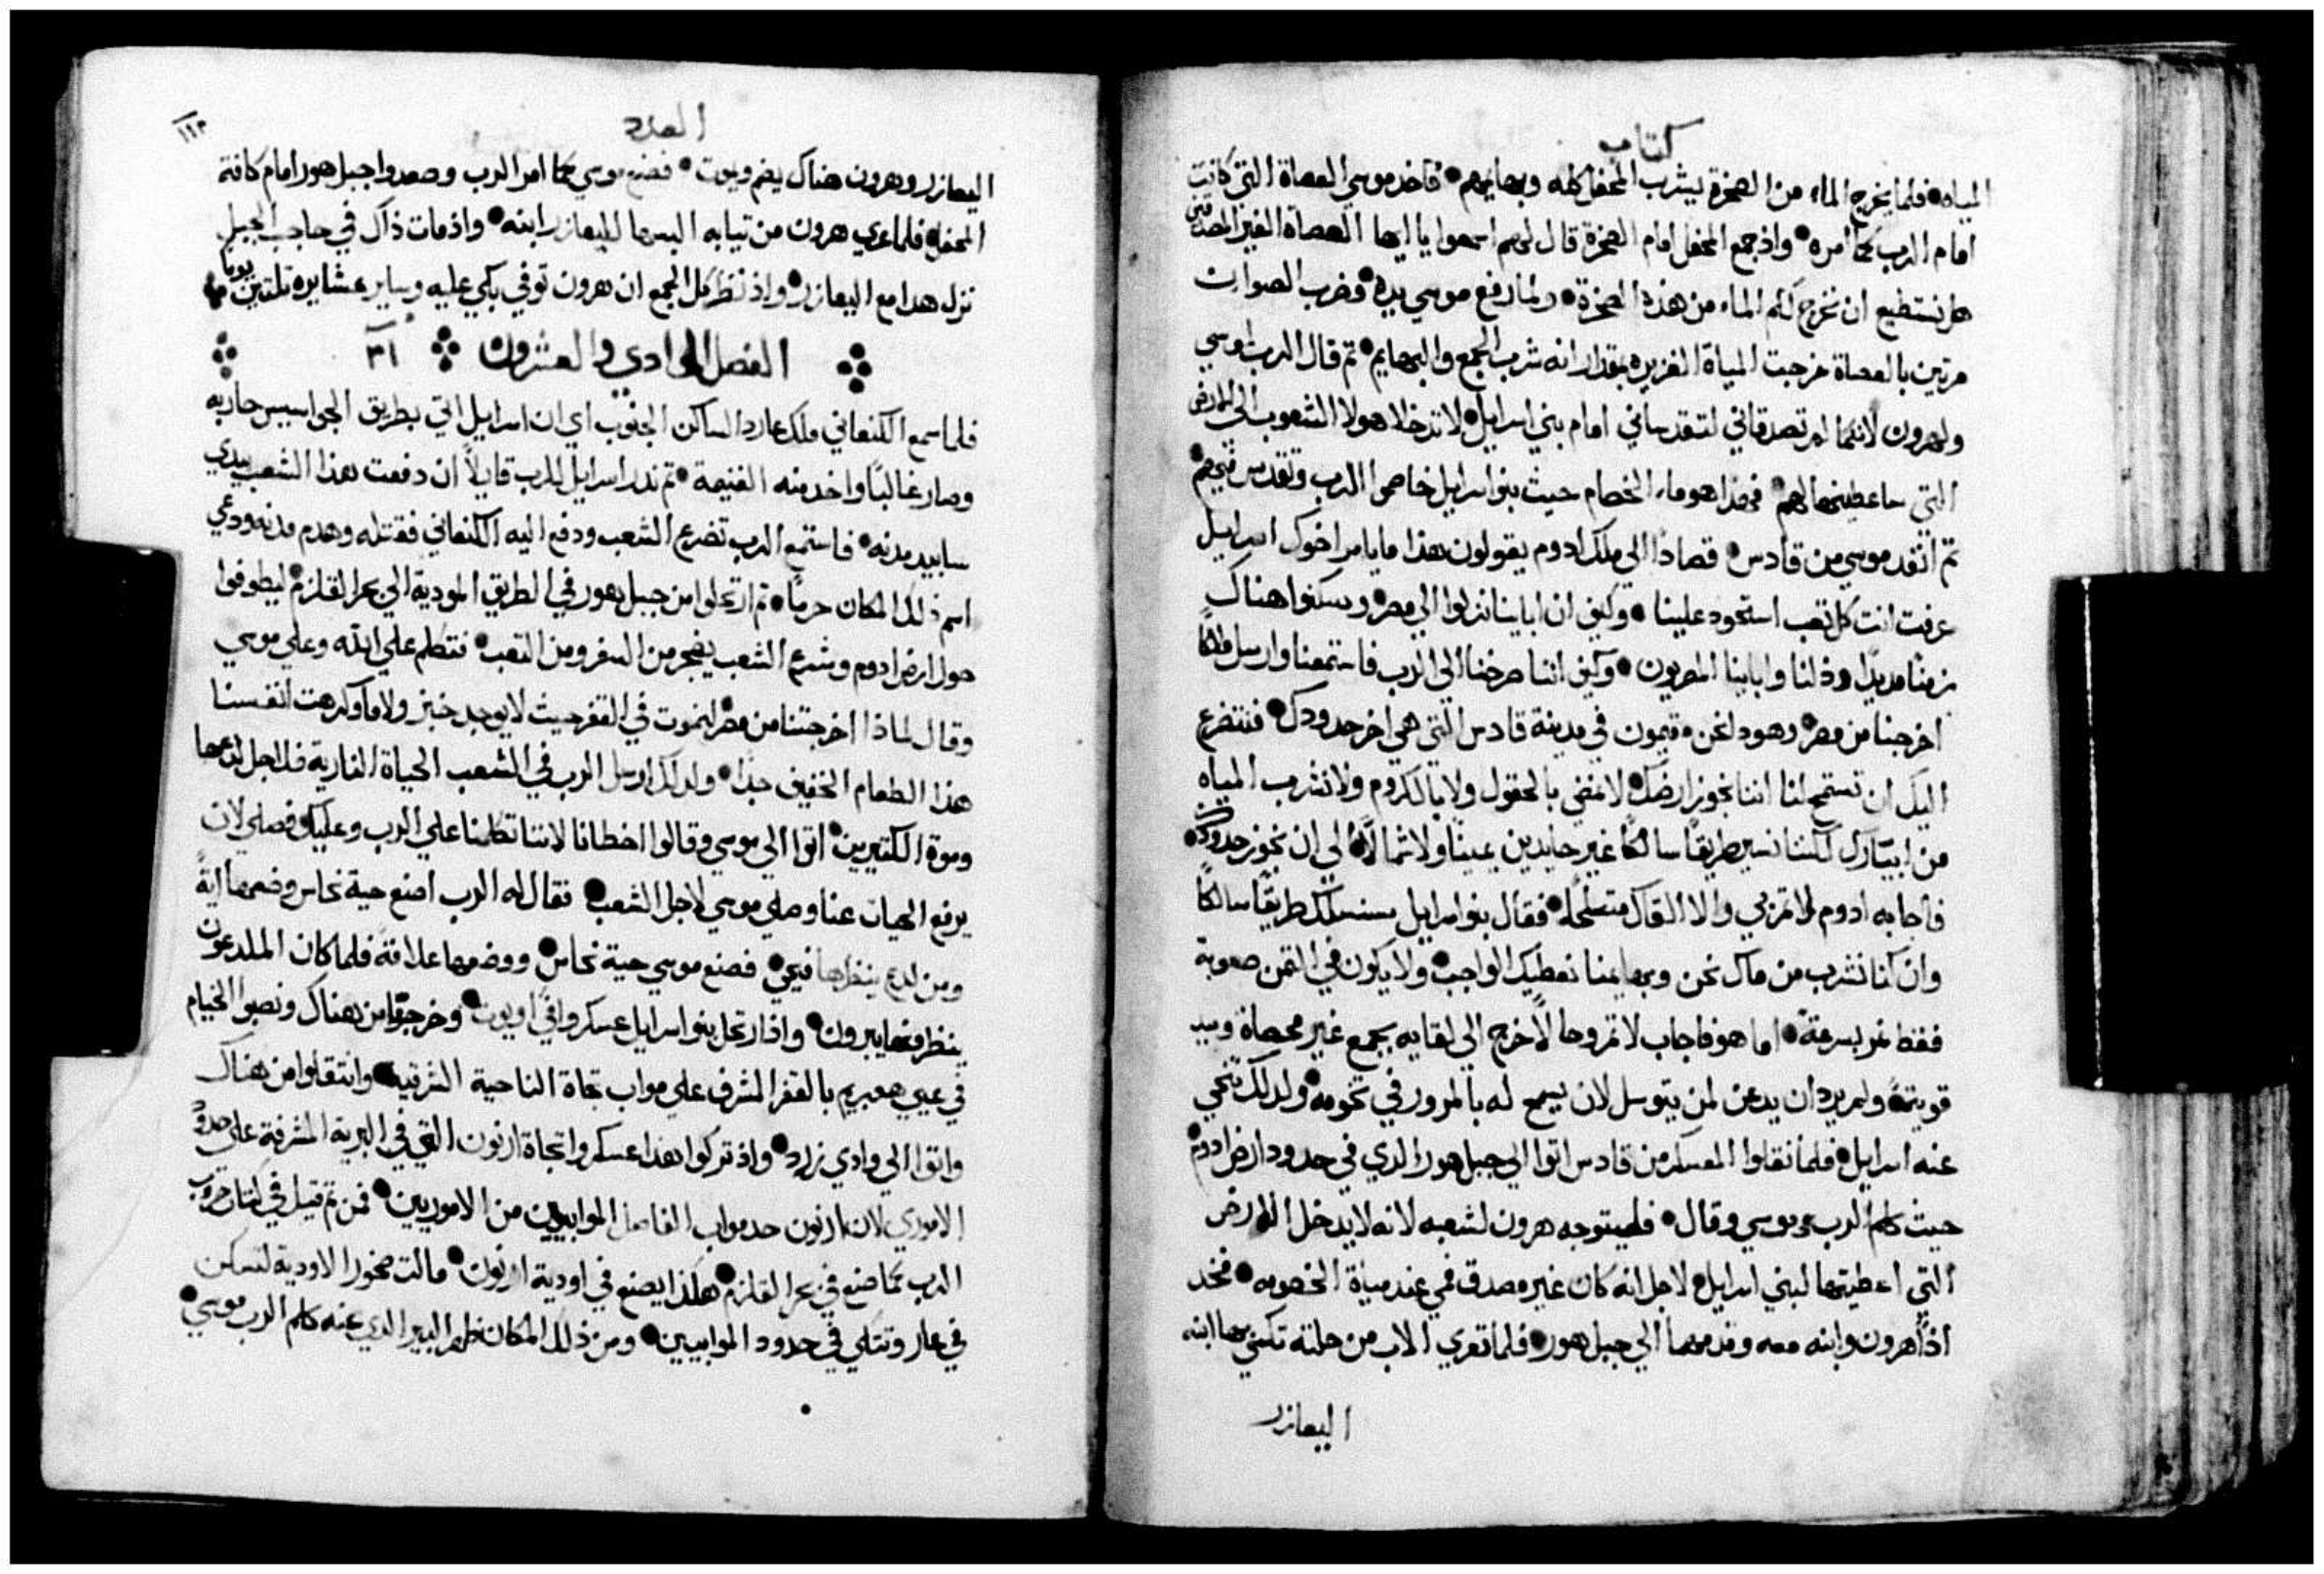 كتاب
المياه فلما يخرج الماء من الصخرة ليشرب المحفل كله وبهايمهم فاخد موسي العصاة التي كانت
امام الرب كما امره واذ جمع المحفل امام الصخرة قال لهم اسمعوا يا ايها العصاة الغير المصدقين
هل نستطيع ان نخرج لكم الماء من هذه الصخرة ولما رفع موسي يده وضرب الصوان
مرتين بالعصاة خرجت المياة الغزيره بمقدار انه شرب الجمع والبهايم تم قال الرب لموسي
ولهرون لانكما لم تصدقاني لتقدساني امام بني اسرايل لا تدخلا هولا الشعوب الي الارض
التي ساعطيها لهم فهذا هو ماء الخصام حيث بنو اسرايل خاصموا الرب وتقدس فيهم
تم انقد موسي من قادس قصادا الي ملك ادوم يقولون هذا ما يامر اخوك اسرايل
عرفت انت كل تعب استحود علينا وكيف ان اباينا نزلوا الي مصر وسكنوا هناك
زمنا مديدا وذلنا واباينا المصريون وكيف اننا صرخنا الي الرب فاستمعنا وارسل ملاكا
اخرجنا من مصر وهودا نحن مقيمون في مدينة قادس التي هي اخر حدودك فنتضرع
اليك ان تسمح لنا اننا نجوز ارضك لا نمضي بالحقول ولا بالكروم ولا نشرب المياه
من ابيارك لكننا نسير طريقا سالكا غير حايدين يمينا ولا شمالا الي ان نجوز حدودك
فاجابه ادوم لا تمر بي والا القاك متسلحا فقال بنو اسرايل سنسلك طريقا سالكا
وان كنا نشرب من ماك نحن وبهايمنا نعطيك الواجب ولا يكون في التمن صعوبة
فقط نمر بسرعة اما هو فاجاب لا تمر وحالا خرج الي لقايه بجمع غير محصاة وبيد
قوية ولم يرد ان يدعن لمن يتوسل لان يسمح له بالمرور في تخومه ولدلك تنحي
عنه اسرايل فلما نقلوا المعسكر من قادس اتوا الي جبل هور الدي في حدود ارض ادوم
حيث كلم الرب موسي وقال فليتوجه هرون لشعبه لانه لا يدخل الارض
التي اعطيتها لبني اسرايل لاجل انه كان غير مصدق فمي عند مياة الخصومه فخد
اذا هرون وابنه معه وقدمهما الي جبل هور فلما تعري الاب من حلته تكسي بها ابنه
اليعازر
العدد
١١٣
اليعازر وهرون هناك يضم ويموت فصنع موسي كما امر الرب وصعدوا جبل هور امام كافة
المحفل فلما عري هرون من تيابه البسها لليعازر ابنه واذ مات ذاك في حاجب الجبل
نزل هدا مع اليعازر واذ نظر كل الجمع ان هرون توفي بكي عليه وساير عشايره تلتين يوما
الفصل الحادي والعشرون ٢١
فلما سمع الكنعاني ملك عارد الساكن الجنوب اي ان اسرايل اتي بطريق الجواسيس حاربه
وصار غالبا واخد منه الغنيمة تم ندر اسرايل للرب قايلا ان دفعت هذا الشعب بيدي
سابيد مدنه فاستمع الرب تضرع الشعب ودفع اليه الكنعاني فقتله وهدم مدنه ودعي
اسم ذلك المكان حرما تم ارتحلوا من جبل هور في الطريق المودية الي بحر القلزم ليطوفوا
حول ارض ادوم وشرع الشعب يضجر من السفر ومن التعب فتكلم علي الله وعلي موسي
وقال لماذا اخرجتنا من مصر لنموت في القفر حيث لا يوجد خبز ولا ما وكرهت انفسنا
هذا الطعام الخفيف جدا ولدلك ارسل الرب في الشعب الحياة النارية فلاجل لدعها
وموة الكتيرين اتوا الي موسي وقالوا اخطانا لاننا تكلمنا علي الرب وعليك فصلي لان
يرفع الحيات عنا وصلي موسي لاجل الشعب فقال له الرب اصنع حية نحاس وضعها اية
ومن لدع ينظرها فيحي فصنع موسي حية نحاس ووضعها علامة فلما كان الملدعون
ينظرونها يبرون واذ ارتحل بنو اسرايل عسكروا في اوبوت وخرجوا من هناك ونصبوا الخيام
في عيي معبريم بالقفر المشرف علي مواب تجاة الناحية الشرقية وانتقلوا من هناك
واتوا الي وادي زارد واذ تركوا هذا عسكروا تجاة ارنون التي في البرية المشرفة علي حدود
الاموري لان ارنون حد مواب الفاصل الموابيين من الاموريين فمن تم قيل في كتاب حروب
الرب كما صنع في بحر القلزم هكذا يصنع في اودية ارنون مالت صخور الاودية لتسكن
في عار وتتكي في حدود الموابيين ومن ذلك المكان ظهر البير الدي عنه كلم الرب موسي